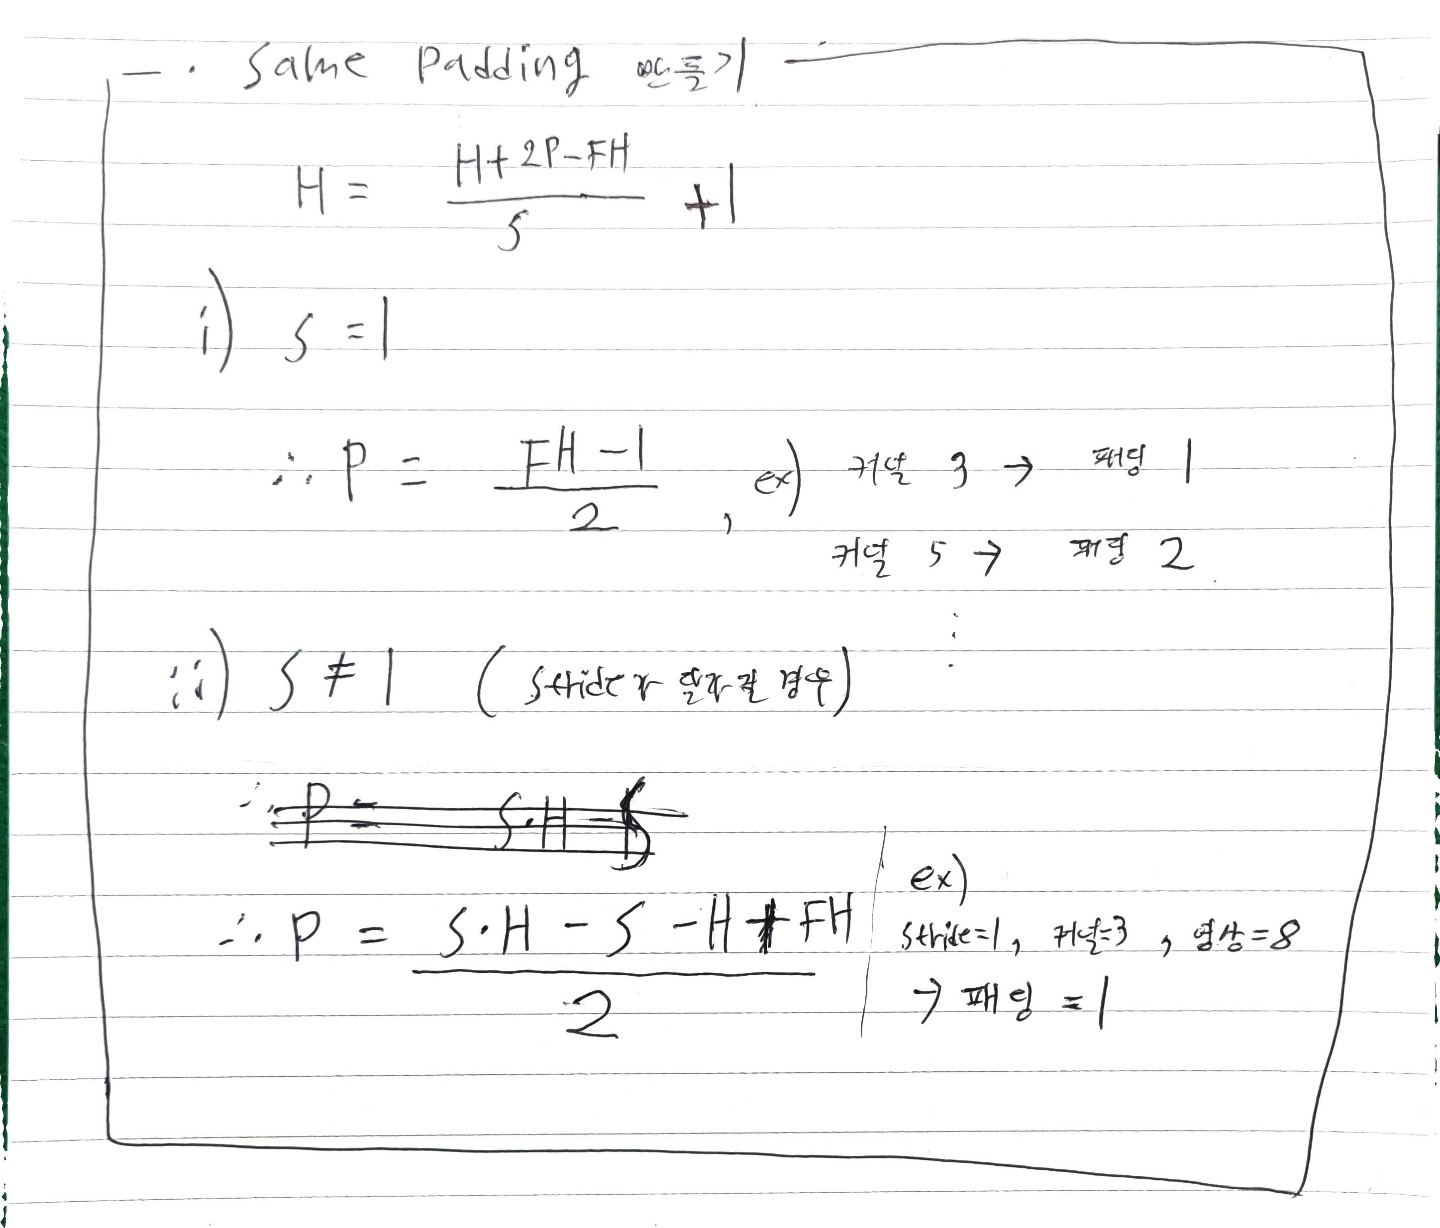 − . Same Padding 만들기
H = (H+2P−FH)/S +1
i) S =1
∴ P = (FH−1)/2 , ex) 커널 3 → 패딩 1
커널 5 → 패딩 2
⋮
ii) S ≠ 1 (stride가 달라질 경우)
∴ P = S·H − S
∴ P = (S·H − S − H + FH)/2
ex)
stride=1, 커널=3 , 영상=8
→ 패딩 =1